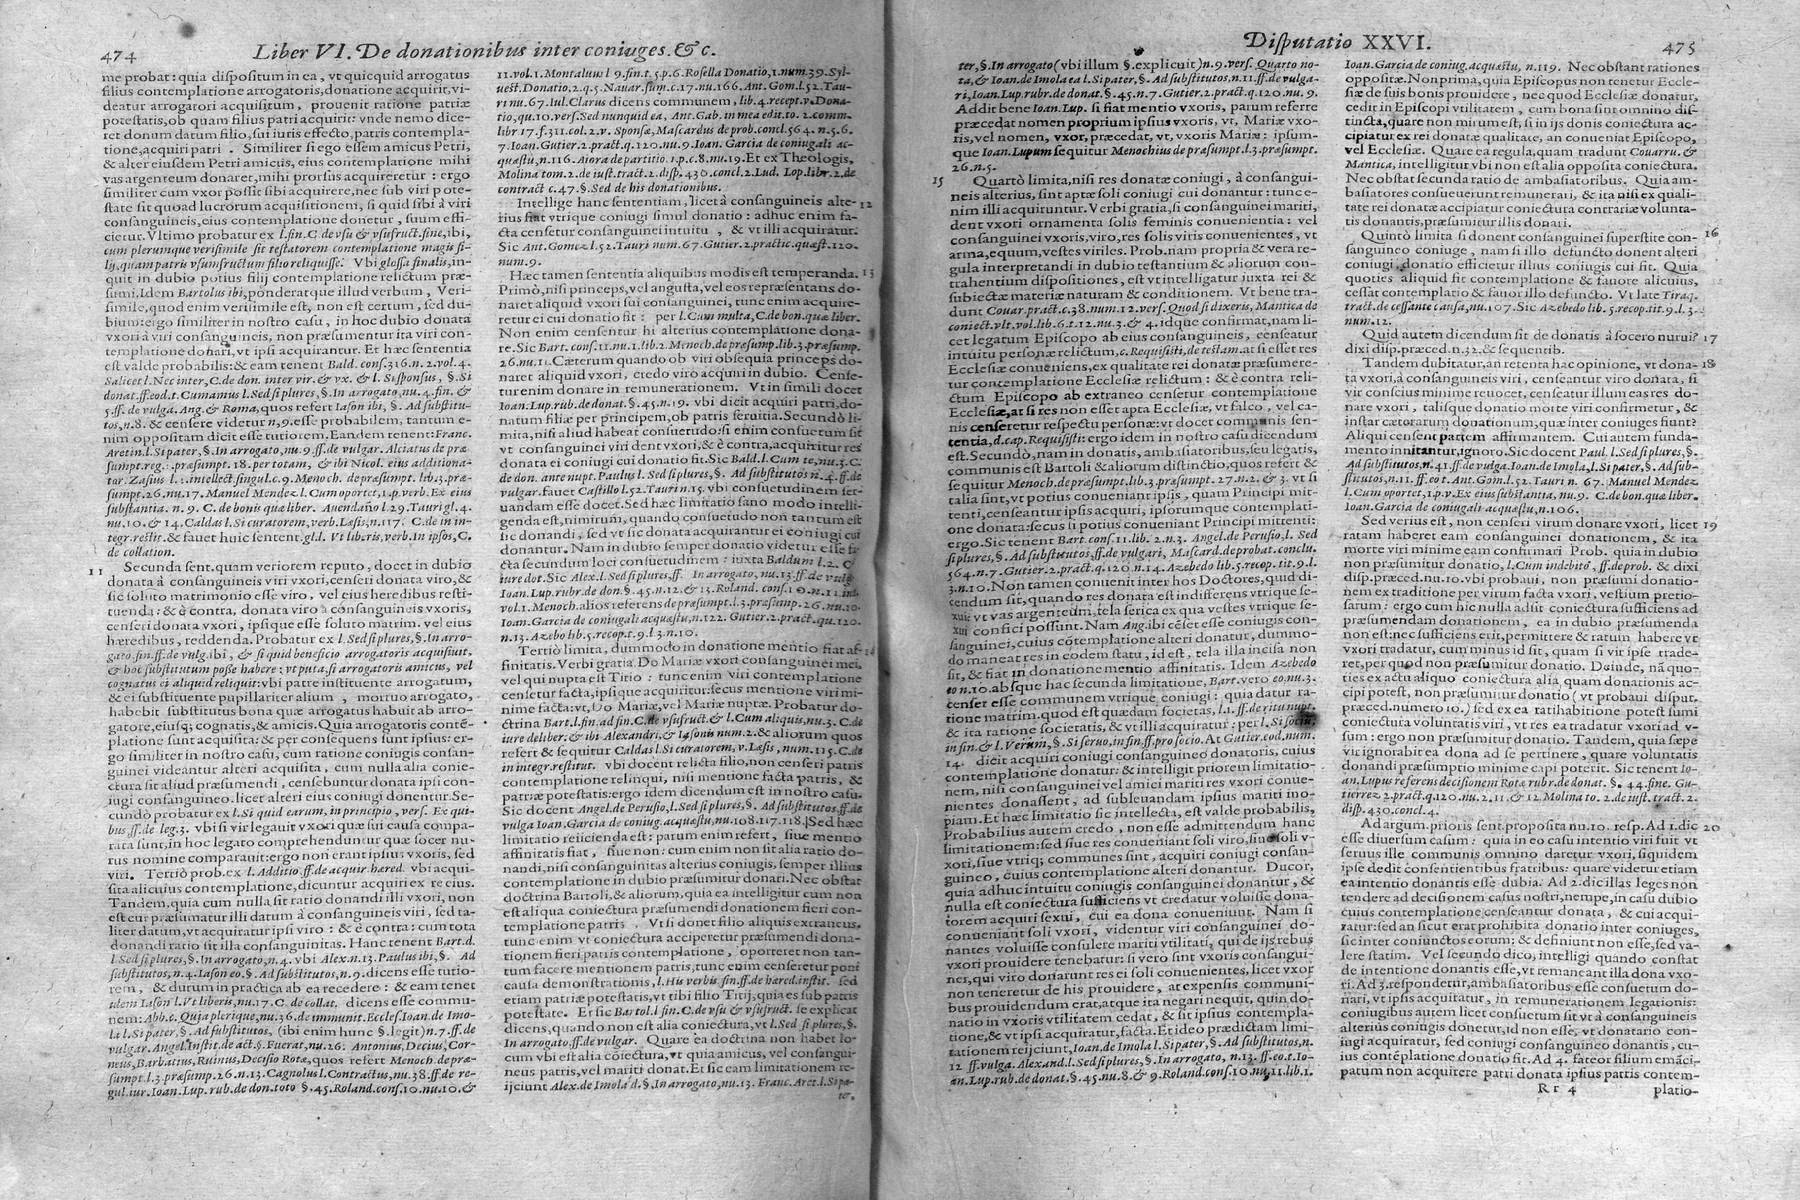 474
Liber VI. De donationibus inter coniuges. & c.
me probat: quia dispositum in ea, vt quicquid arrogatus
filius contemplatione arrogatoris, donatione acquirit, vi-
deatur arrogatori acquisitum, prouenit ratione patriæ
potestatis, ob quam filius patri acquirit: vnde nemo dice-
ret donum datum filio, sui iuris effecto, patris contempla-
tione, acquiri patri. Similiter si ego essem amicus Petri,
& alter eiusdem Petri amicus, eius contemplatione mihi
vas argenteum donaret, mihi prorsus acquireretur: ergo
similiter cum vxor possit sibi acquirere, nec sub viri pote-
state sit quoad lucrorum acquisitionem, si quid sibi à viri
consanguineis, eius contemplatione donetur, suum effi-
cietur. Vltimo probatur ex l. fin. C de vsu & vsufruct. sine, ibi,
cum plerumque verisimile sit testatorem contemplatione magis fi-
lij, quam patris vsumfructum filio reliquisse. Vbi glossa finalis, in-
quit in dubio potius filij contemplatione relictum præ-
sumi. Idem Bartolus ibi, ponderatque illud verbum, Veri-
simile, quod enim verisimile est, non est certum, sed du-
bium: ergo similiter in nostro casu, in hoc dubio donata
vxori à viri consanguineis, non præsumentur ita viri con-
templatione donari, vt ipsi acquirantur. Et hæc sententia
est valde probabilis: & eam tenent Bald. cons. 316. n. 2. vol. 4.
Salicet l. Nec inter, C. de don. inter vir. & vx. & l. Si sponsus, §. Si
donat. ff. eod. t. Cumanus l. Sed si plures, §. In arrogato, nu. 4. fin. &
5. ff. de vulga. Ang. & Roma, quos refert Iason ibi, §. Ad substitu-
tos, n. 8. & censere videtur n. 9. esse probabilem, tantum e-
nim oppositam dicit esse tutiorem. Eandem tenent: Franc.
Aretin. l. Si pater, §. In arrogato, nu. 9. ff. de vulgar. Alciatus de præ
sumpt. reg. 1. præsumpt. 18. per totam, & ibi Nicol. eius additiona-
tor. Zasius l. 1. intellect. singul. c. 9. Menoch. de præsumpt. lib. 3. præ-
sumpt. 26. nu. 17. Manuel Mendez l. Cum oportet, 1. p. verb. Ex eius
substantia. n. 9. C. de bonis quæ liber. Auendaño l. 29. Tauri gl. 4.
nu. 10. & 14. Caldas l. Si curatorem, verb. Læsis, n. 117. C. de in in-
tegr. restit. & fauet huic sentent. gl. l. Vt liberis, verb. In ipsos, C.
de collation.
11
Secunda sent. quam veriorem reputo, docet in dubio
donata à consanguineis viri vxori, censeri donata viro, &
sic soluto matrimonio esse viro, vel eius heredibus resti-
tuenda: & è contra, donata viro à consanguineis vxoris,
censeri donata vxori, ipsique esse soluto matrim. vel eius
hæredibus, reddenda. Probatur ex l. Sed si plures, §. In arro-
gato. fin. ff. de vulg. ibi, & si quid beneficio arrogatoris acquisiuit,
& hoc substitutum posse habere: vt puta, si arrogatoris amicus, vel
cognatus ei aliquid reliquit: vbi patre instituente arrogatum,
& ei substituente pupillariter alium, mortuo arrogato,
habebit substitutus bona quæ arrogatus habuit ab arro-
gatore, eiusq; cognatis, & amicis. Quia arrogatoris contē-
platione sunt acquisita: & per consequens sunt ipsius: er-
go similiter in nostro casu, cum ratione coniugis consan-
guinei videantur alteri acquisita, cum nulla alia conie-
ctura sit aliud præsumendi, censebuntur donata ipsi con-
iugi consanguineo. licet alteri eius coniugi donentur. Se-
cundò probatur ex l. Si quid earum, in principio, vers. Ex qui-
bus, ff. de leg. 3. vbi si vir legauit vxori quæ sui causa compa-
rata sunt, in hoc legato comprehenduntur quæ socer nu-
rus nomine comparauit: ergo non erant ipsius vxoris, sed
viri. Tertiò prob. ex l. Additio. ff. de acquir. hared. vbi acqui-
sita alicuius contemplatione, dicuntur acquiri ex re eius.
Tandem, quia cum nulla sit ratio donandi illi vxori, non
est cur præsumatur illi datum à consanguineis viri, sed ta-
liter datum, vt acquiratur ipsi viro: & è contra: cum tota
donandi ratio sit illa consanguinitas. Hanc tenent Bart. d.
l. Sed si plures, §. In arrogato, n. 4. vbi Alex. n. 13. Paulus ibi, §. Ad
substitutos, n. 4. Iason eo. §. Ad substitutos, n. 9. dicens esse tutio-
rem, & durum in practica ab ea recedere: & eam tenet
idem Iason l. Vt liberis, nu. 17. C. de collat. dicens esse commu-
nem: Abb. c. Quia plerique, nu. 36. de immunit. Eccles. Ioan. de Imo-
la l. Si pater, §. Ad substitutos, (ibi enim hunc §. legit) n. 7. ff. de
vulgar. Angel. Instit. de act. §. Fuerat, nu. 26. Antonius, Decius, Cor-
neus, Barbatius, Ruinus, Decisio Rotæ, quos refert Menoch. de præ-
sumpt. l. 3. præsump. 26. n. 13. Cagnolus l. Contractus, nu. 38. ff. de re-
gul. iur. Ioan. Lup. rub. de don. toto §. 45. Roland. cons. 10. nu. 10. &
11. vol. 1. Montaluus l 9. fin. t. 5. p. 6. Rosella Donatio, 1. num. 39. Syl-
uest. Donatio, 2. q. 5. Nauar. sum. c. 17. nu. 166. Ant. Gom. l. 52. Tau-
ri nu. 67. Iul. Clarus dicens communem, lib. 4. recept. v. Dona-
tio, qu. 10. vers. Sed nunquid ea, Ant. Gab. in mea edit. to. 2. comm.
libr 17. f. 311. col. 2. v. Sponsæ, Mascardus de prob. concl. 564. n. 5. 6.
7. Ioan. Gutier. 2. pract. q. 120. nu. 9. Ioan. Garcia de coniugali ac-
quæstu, n. 116. Aiora de partitio. 1. p. c. 8. nu. 19. Et ex Theologis,
Molina tom. 2. de iust. tract. 2. disp. 430. concl. 2. Lud. Lop. libr. 2. de
contract c. 47. §. Sed de his donationibus.
Intellige hanc sententiam, licet à consanguineis alte- 12
rius fiat vtrique coniugi simul donatio: adhuc enim fa-
cta censetur consanguinei intuitu, & vt illi acquiratur.
Sic Ant. Gomez l. 52. Tauri num. 67. Gutier. 2. practic. quæst. 120.
num. 9.
Hæc tamen sententia aliquibus modis est temperanda. 13
Primò, nisi princeps, vel augusta, vel eos repræsentans do-
naret aliquid vxori sui consanguinei, tunc enim acquire-
retur ei cui donatio fit: per l. Cum multa, C. de bon. quæ liber.
Non enim censentur hi alterius contemplatione dona-
re. Sic Bart. cons. 11. nu. 1. lib. 2. Menoch. de præsump. lib. 3. præsump.
26. nu. 11. Cæterum quando ob viri obsequia princeps do-
naret aliquid vxori, credo viro acquiri in dubio. Cense-
tur enim donare in remunerationem. Vt in simili docet
Ioan. Lup. rub. de donat. §. 45. n. 19. vbi dicit acquiri patri, do-
natum filiæ per principem, ob patris seruitia. Secundò li-
mita, nisi aliud habeat consuetudo: si enim consuetum sit
vt consanguinei viri dent vxori, & è contra, acquiritur res
donata ei coniugi cui donatio fit. Sic Bald. l. Cum te, nu. 3. C.
de don. ante nupt. Paulus l. Sed si plures, §. Ad substitutos n. 4. ff. de
vulgar. fauet Castillo l. 52. Tauri n. 15. vbi consuetudinem ser-
uandam esse docet. Sed hæc limitatio sano modo intelli-
genda est, nimirum, quando consuetudo non tantum est
sic donandi, sed vt sic donata acquirantur ei coniugi cui
donantur. Nam in dubio semper donatio videtur esse fa-
cta secundum loci consuetudinem: iuxta Baldum l. 2. C
iure dot. Sic Alex. l. Sed si plures, ff. In arrogato, nu. 13. ff. de vulg
Ioan. Lup. rubr. de don. §. 45. n. 12. & 13. Roland. cons. 10. n. 11.
vol. 1. Menoch. alios referens de præsumpt. l. 3. præsump. 26. nu. 10.
Ioan. Garcia de coniugali acquæstu, n. 122. Gutier. 2. pract. qu. 120.
n. 13. Azebo lib. 5. recop. t. 9. l 3. n. 10.
Tertiò limita, dummodo in donatione mentio fiat af-
finitatis. Verbi gratia. Do Mariæ vxori consanguinei mei,
vel qui nupta est Titio: tunc enim viri contemplatione
censetur facta, ipsique acquiritur: secus mentione viri mi-
nime facta: vt, Do Mariæ, vel Mariæ nuptæ. Probatur do-
ctrina Bart. l. fin. ad fin. C. de vsufruct. & l. Cum aliquis, nu. 3. C. de
iure deliber. & ibi Alexandri, & Iasonis num. 2. & aliorum quos
refert & sequitur Caldas l. Si curatorem, v. Læsis, num. 115. C. de
in integr. restitut. vbi docent relicta filio, non censeri patris
contemplatione relinqui, nisi mentione facta patris, &
patriæ potestatis: ergo idem dicendum est in nostro casu.
Sic docent Angel. de Perusio, l. Sed si plures, §. Ad substitutos. ff. de
vulga Ioan. Garcia de coniug. acquæstu, nu. 108. 117. 118. Sed hæc
limitatio reiicienda est: parum enim refert, siue mentio
affinitatis fiat, siue non: cum enim non sit alia ratio do-
nandi, nisi consanguinitas alterius coniugis, semper illius
contemplatione in dubio præsumitur donari. Nec obstat
doctrina Bartoli, & aliorum, quia ea intelligitur cum non
est aliqua coniectura præsumendi donationem fieri con-
templatione patris. Vt si donet filio aliquis extraneus,
tunc enim vt coniectura acciperetur præsumendi dona-
tionem fieri patris contemplatione, oporteret non tan-
tum facere mentionem patris, tunc enim censeretur poni
causa demonstrationis, l. His verbis fin. ff. de hæred. instit. sed
etiam patriæ potestatis, vt tibi filio Titij, quia es sub patris
potestate. Et sic Bartol. l fin. C. de vsu & vsufruct. se explicat
dicens, quando non est alia coniectura, vt l. Sed si plures, §.
In arrogato. ff. de vulgar. Quare ea doctrina non habet lo-
cum vbi est alia cōiectura, vt quia amicus, vel consangui-
neus patris, vel mariti donat. Et sic eam limitationem re-
ijciunt Alex. de Imola d. §. In arrogato, nu. 13. Franc. Aret. l. Si pa-
ter,
Disputatio XXVI.
475
ter, §. In arrogato (vbi illum §. explicuit) n. 9. vers. Quarto no-
ta, & Ioan. de Imola ea l. Si pater, §. Ad substitutos, n. 11. ff. de vulga-
ri, Ioan. Lup. rub. de donat. §. 45. n. 7. Gutier. 2. pract. q. 120. nu. 9.
Addit bene Ioan. Lup. si fiat mentio vxoris, parum referre
præcedat nomen proprium ipsius vxoris, vt, Mariæ vxo-
ris, vel nomen, vxor, præcedat, vt, vxoris Mariæ: ipsum-
que Ioan. Lupum sequitur Menochius de præsumpt. l. 3. præsumpt.
26. n. 5.
15
Quartò limita, nisi res donatæ coniugi, à consangui-
neis alterius, sint aptæ soli coniugi cui donantur: tunc e-
nim illi acquiruntur. Verbi gratia, si consanguinei mariti,
dent vxori ornamenta solis feminis conuenientia: vel
consanguinei vxoris, viro, res solis viris conuenientes, vt
arma, equum, vestes viriles. Prob. nam propria & vera re-
gula interpretandi in dubio testantium & aliorum con-
trahentium dispositiones, est vt intelligatur iuxta rei &
subiectæ materiæ naturam & conditionem. Vt bene tra-
dunt Couar. pract. c. 38. num. 12. vers. Quod si dixeris, Mantica de
coniect. vlt. vol. lib. 6. t. 12. nu. 3. & 4. idque confirmat, nam li-
cet legatum Episcopo ab eius consanguineis, censeatur
intuitu personæ relictum, c. Requisisti, de testam. at si esset res
Ecclesiæ conueniens, ex qualitate rei donatæ præsumere-
tur contemplatione Ecclesiæ relictum: & è contra reli-
ctum Episcopo ab extraneo censetur contemplatione
Ecclesiæ, at si res non esset apta Ecclesiæ, vt falco, vel ca-
nis censeretur respectu personæ: vt docet communis sen-
tentia, d. cap. Requisisti: ergo idem in nostro casu dicendum
est. Secundò, nam in donatis, ambasiatoribus, seu legatis,
communis est Bartoli & aliorum distinctio, quos refert &
sequitur Menoch. de præsumpt. lib. 3. præsumpt. 27. n. 2. & 3. vt si
talia sint, vt potius conueniant ipsis, quam Principi mit-
tenti, censeantur ipsis acquiri, ipsorumque contemplati-
one donata: secus si potius conueniant Principi mittenti:
ergo. Sic tenent Bart. cons. 11. lib. 2. n. 3. Angel. de Perusio, l. Sed
si plures, §. Ad substitutos, ff. de vulgari, Mascard. de probat. conclu.
564. n. 7. Gutier. 2. pract. q. 120. n. 14. Azebedo lib. 5. recop. tit. 9. l.
3. n. 10. Non tamen conuenit inter hos Doctores, quid di-
cendum sit, quando res donata est indifferens vtrique se-
xui: vt vas argenteum, tela serica ex qua vestes vtrique se-
xui confici possunt. Nam Ang. ibi cēset esse coniugis con-
sanguinei, cuius cōtemplatione alteri donatur, dummo-
do maneat res in eodem statu, id est, tela illa incisa non
sit, & fiat in donatione mentio affinitatis. Idem Azebedo
eo n. 10. absque hac secunda limitatione, Bart. vero eo nu. 3.
censet esse communem vtrique coniugi: quia datur ra-
tione matrim. quod est quædam societas, l. 1. ff. de ritu nupt.
& ita ratione societatis, & vt illi acquiratur: per l. Si socius,
in fin. & l. Verum, §. Si seruo, in fin. ff. pro socio. At Gutier. eod. num.
14. dicit acquiri coniugi consanguineo donatoris, cuius
contemplatione donatur: & intelligit priorem limitatio-
nem, nisi consanguinei vel amici mariti res vxori conue-
nientes donassent, ad subleuandam ipsius mariti ino-
piam. Et hæc limitatio sic intellecta, est valde probabilis,
Probabilius autem credo, non esse admittendum hanc
limitationem: sed siue res conueniant soli viro, siue soli v-
xori, siue vtriq; communes sint, acquiri coniugi consan-
guineo, cuius contemplatione alteri donantur. Ducor,
quia adhuc intuitu coniugis consanguinei donantur, &
nulla est coniectura sufficiens vt credatur voluisse dona-
torem acquiri sexui, cui ea dona conueniunt. Nam si
conueniant soli vxori, videntur viri consanguinei do-
nantes voluisse consulere mariti vtilitati, qui de ijs rebus
vxori prouidere tenebatur: si vero sint vxoris consangui-
nei, qui viro donarunt res ei soli conuenientes, licet vxor
non teneretur de his prouidere, at expensis communi-
bus prouidendum erat, atque ita negari nequit, quin do-
natio in vxoris vtilitatem cedat, & sit ipsius contempla-
tione, & vt ipsi acquiratur, facta. Et ideo prædictam limi-
tationem reijciunt, Ioan. de Imola l. Si pater, §. Ad substitutos, n.
12 ff. vulga. Alexand. l. Sed si plures, §. In arrogato, n. 13. ff. eo t. Io-
an. Lup. rub. de donat. §. 45. nu. 8. & 9. Roland. cons. 10. nu, 11. lib. 1.
Ioan. Garcia de coniug. acquæstu, n. 119. Nec obstant rationes
oppositæ. Non prima, quia Episcopus non tenetur Eccle-
siæ de suis bonis prouidere, nec quod Ecclesiæ donatur,
cedit in Episcopi vtilitatem, cum bona sint omnino dis-
tincta, quare non mirum est, si in ijs donis coniectura ac-
cipiatur ex rei donatæ qualitate, an conueniat Episcopo,
vel Ecclesiæ. Quare ea regula, quam tradunt Couarru. &
Mantica, intelligitur vbi non est alia opposita coniectura.
Nec obstat secunda ratio de ambasiatoribus. Quia am-
basiatores consueuerunt remunerari, & ita nisi ex quali-
tate rei donatæ accipiatur coniectura contrariæ volunta-
tis donantis, præsumitur illis donari.
Quintò limita si donent consanguinei superstite con- 16
sanguineo coniuge, nam si illo defuncto donent alteri
coniugi, donatio efficietur illius coniugis cui fit. Quia
quoties aliquid fit contemplatione & fauore alicuius,
cessat contemplatio & fauor illo defuncto. Vt late Tiraq.
tract. de cessante causa, nu. 107. Sic Azebedo lib. 5. recop. tit. 9. l. 3.
num. 12.
Quid autem dicendum sit de donatis à socero nurui? 17
dixi disp. præced. n. 32. & sequentib.
Tandem dubitatur, an retenta hac opinione, vt dona- 18
ta vxori, à consanguineis viri, censeantur viro donata, si
vir conscius minime reuocet, censeatur illum eas res do-
nare vxori, talisque donatio morte viri confirmetur, &
instar cæterarum donationum, quæ inter coniuges fiunt?
Aliqui censent partem affirmantem. Cui autem funda-
mento innitantur, ignoro. Sic docent Paul. l. Si pater, §.
Ad substitutos, n. 41. ff. de vulga. Ioan. de Imola, l. Si pater, §. Ad sub-
stitutos, n. 11 ff. eo t. Ant. Gom. l. 52. Tauri n. 67. Manuel Mendez
l. Cum oportet, 1. p. v. Ex eius substantia, nu. 9. C. de bon. quæ liber.
Ioan. Garcia de coniugali acquæstu, n. 106.
Sed verius est, non censeri virum donare vxori, licet 19
ratam haberet eam consanguinei donationem, & ita
morte viri minime eam confirmari Prob. quia in dubio
non præsumitur donatio, l. Cum indebito, ff. de prob. & dixi
disp. præced. nu. 10. vbi probaui, non præsumi donatio-
nem ex traditione per virum facta vxori, vestium pretio-
sarum: ergo cum hic nulla adsit coniectura sufficiens ad
præsumendam donationem, ea in dubio præsumenda
non est: nec sufficiens erit, permittere & ratum habere vt
vxori tradatur, cum minus id sit, quam si vir ipse trade-
ret, per quod non præsumitur donatio. Deinde, nā quo-
ties ex actu aliquo coniectura alia, quam donationis ac-
cipi potest, non præsumitur donatio (vt probaui disput.
præced. numero 10.) sed ex ea ratihabitione potest sumi
coniectura voluntatis viri, vt res ea tradatur vxori ad v-
sum: ergo non præsumitur donatio. Tandem, quia sæpe
vir ignorabit ea dona ad se pertinere, quare voluntatis
donandi præsumptio minime capi poterit. Sic tenent Io-
an. Lupus referens decisionem Rotæ rubr. de donat. §. 44. fine. Gu-
tierrez 2. pract. q. 120. nu. 2. 11. & 12 Molina to. 2. de iust. tract. 2.
disp. 430. concl. 4.
Ad argum. prioris sent. proposita nu. 10. resp. Ad 1. dic 20
esse diuersum casum: quia in eo casu intentio viri fuit vt
seruus ille communis omnino daretur vxori, siquidem
ipse dedit consentientibus fratribus: quare videtur etiam
ea intentio donantis esse dubia. Ad 2. dic illas leges non
tendere ad decisionem casus nostri, nempe, in casu dubio
cuius contemplatione censeantur donata, & cui acqui-
ratur: sed an sicut erat prohibita donatio inter coniuges,
sic inter coniunctos eorum; & definiunt non esse, sed va-
lere statim. Vel secundo dico, intelligi quando constat
de intentione donantis esse, vt remaneant illa dona vxo-
ri. Ad 3. respondetur, ambasiatoribus esse consuetum do-
nari, vt ipsis acquiratur, in remunerationem legationis:
coniugibus autem licet consuetum sit vt à consanguineis
alterius coniugis donetur, id non esse, vt donatario con-
iugi acquiratur, sed coniugi consanguineo donantis, cu-
ius contēplatione donatio fit. Ad 4. fateor filium emāci-
patum non acquirere patri donata ipsius patris contem-
Rr 4
platio-